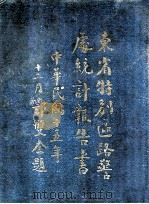 東省特别區路警
處統計報告書
中華民國十五年
十二月
金題